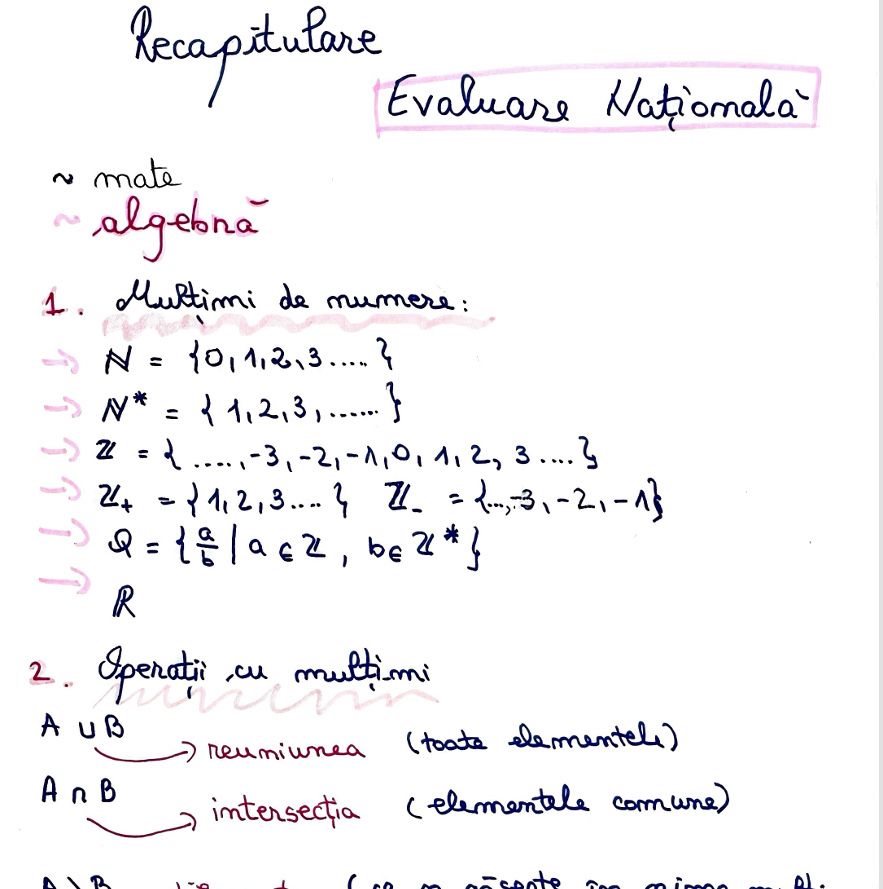 Recapitulare
Evaluare Națională
~ mate
~ algebră
1. Mulțimi de numere:
→ ℕ = {0,1,2,3.....}
→ ℕ* = {1,2,3,......}
→ ℤ = {.....,-3,-2,-1,0,1,2,3....}
→ ℤ₊ = {1,2,3....} ℤ₋ = {...,-3,-2,-1}
→ Q = {a/b | a ∈ ℤ, b ∈ ℤ*}
→ ℝ
2. Operații cu mulțimi
A ∪ B
→ reuniunea (toate elementele)
A ∩ B
→ intersecția (elementele comune)
A \ B